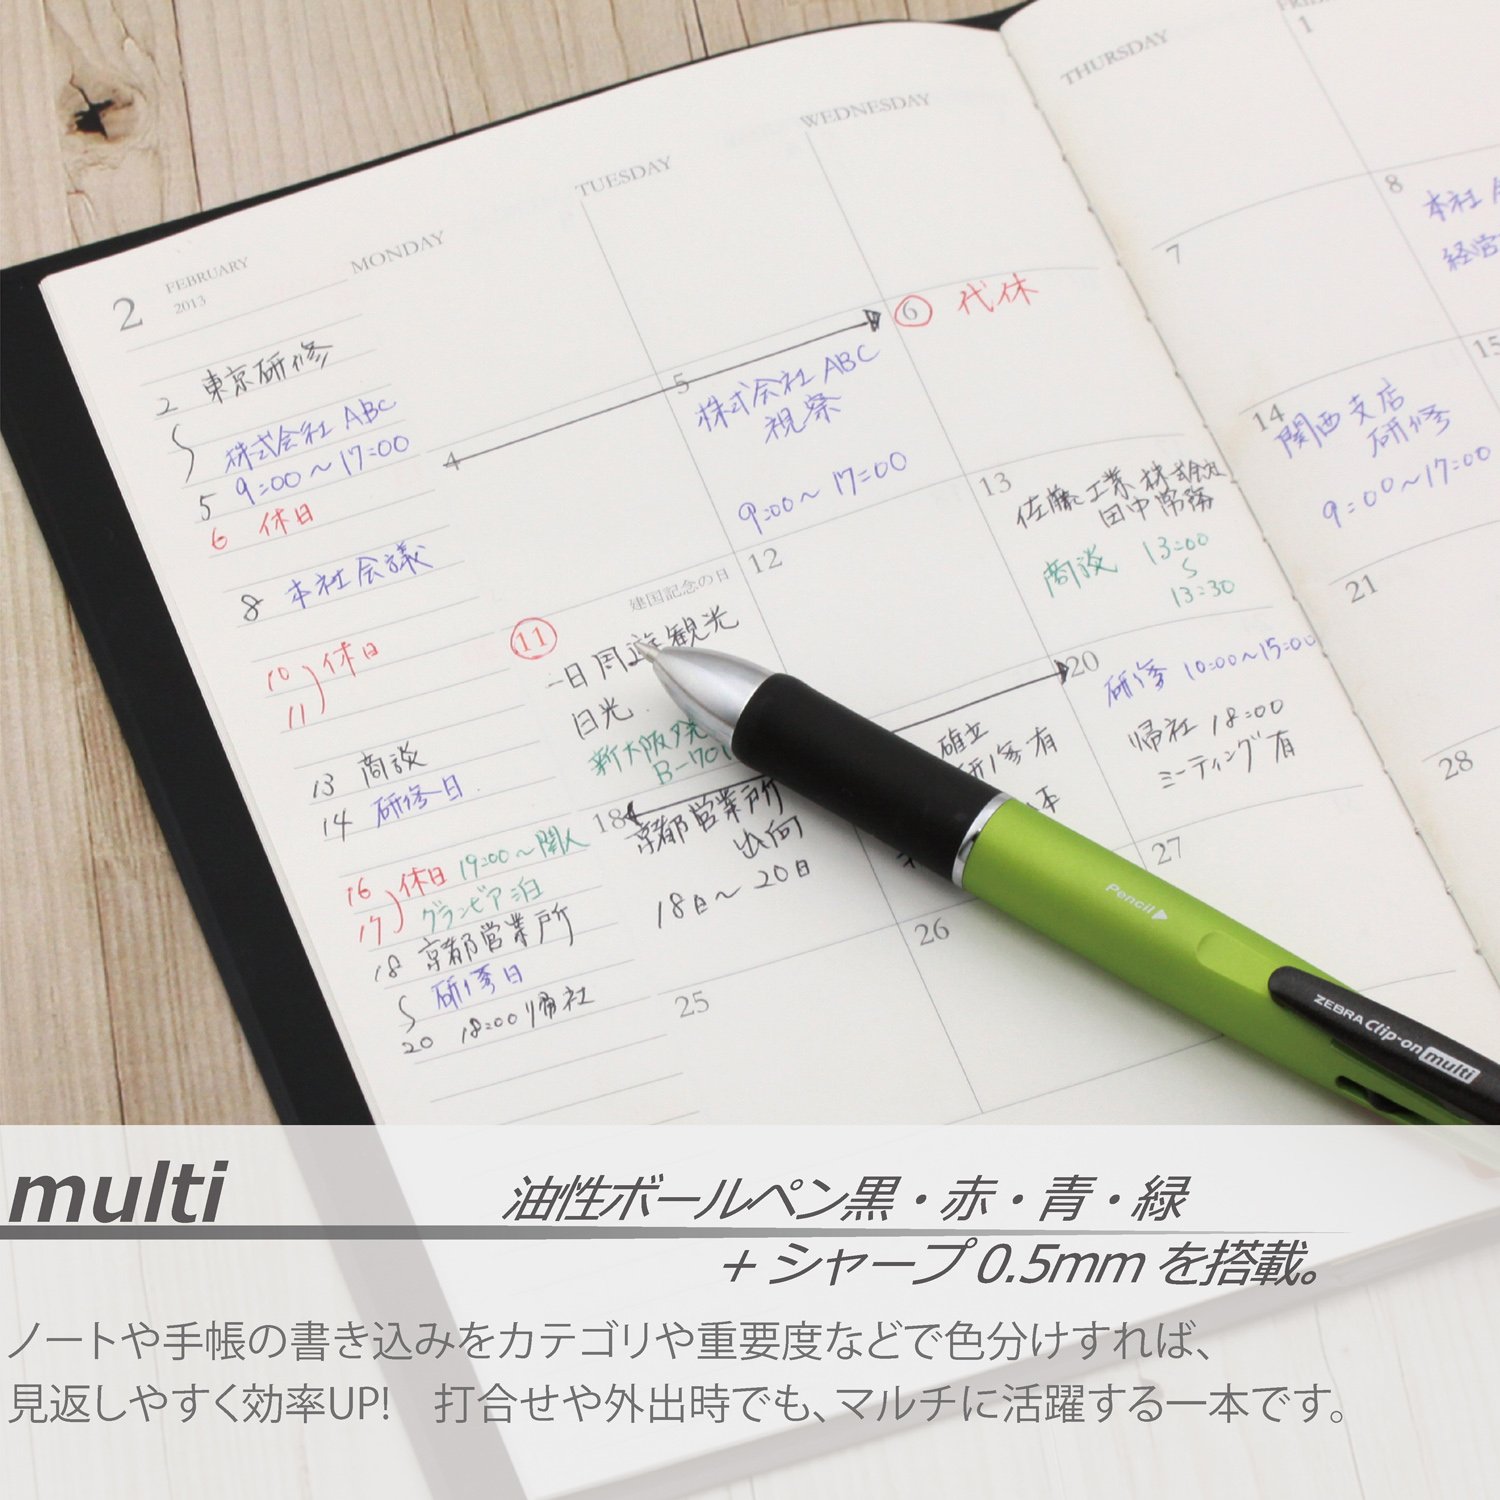 2
FEBRUARY
2013
MONDAY
TUESDAY
WEDNESDAY
THURSDAY
1
2 東京研修
株式会社 ABC
5 9:00～17:00
6 休日
8 本社会議
10 休日
11
13 商談
14 研修日
16 休日 19:00～関人
17 グランビア泊
18 京都営業所
研修日
20 18:00帰社
4
5
株式会社 ABC
視察
9:00～17:00
6 代休
7
8
本社
経営
建国記念の日
11
一日周遊観光
日光
新大阪
B-701
12
13
佐藤工業株式会社
田中常務
商談 13:00
13:30
14
関西支店
研修
9:00～17:00
15
18
京都営業所
出向
18日～20日
確立
研修有
20
研修 10:00～15:00
帰社 18:00
ミーティング有
21
25
26
27
28
Pencil
ZEBRA Clip-on multi
multi
油性ボールペン黒・赤・青・緑
+ シャープ 0.5mm を搭載。
ノートや手帳の書き込みをカテゴリや重要度などで色分けすれば、
見返しやすく効率UP!　打合せや外出時でも、マルチに活躍する一本です。